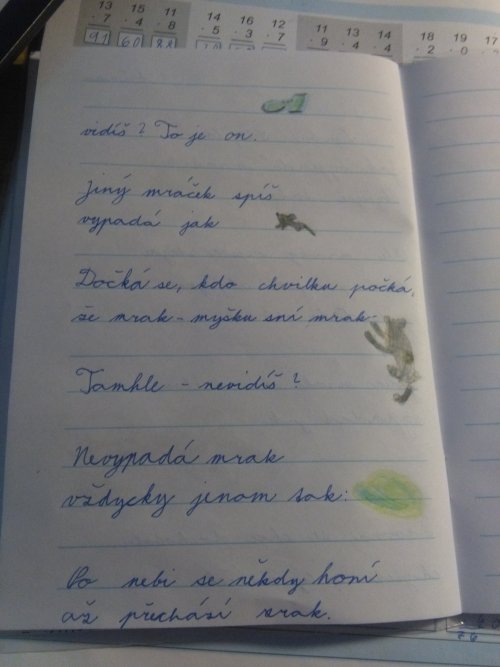 13 15 11
· 7 · 4 · 8
91 60 88
14 16 12
· 5 · 3 · 7
11 13 14
· 9 · 4 · 4
18 19 17
· 2 · 0
vidíš? To je on.
Jiný mráček spíš
vypadá jak
Dočká se, kdo chvilku počká,
že mrak-myšku sní mrak-
Tamhle - nevidíš?
Nevypadá mrak
vždycky jenom tak:
Po nebi se někdy honí
až přechází zrak.